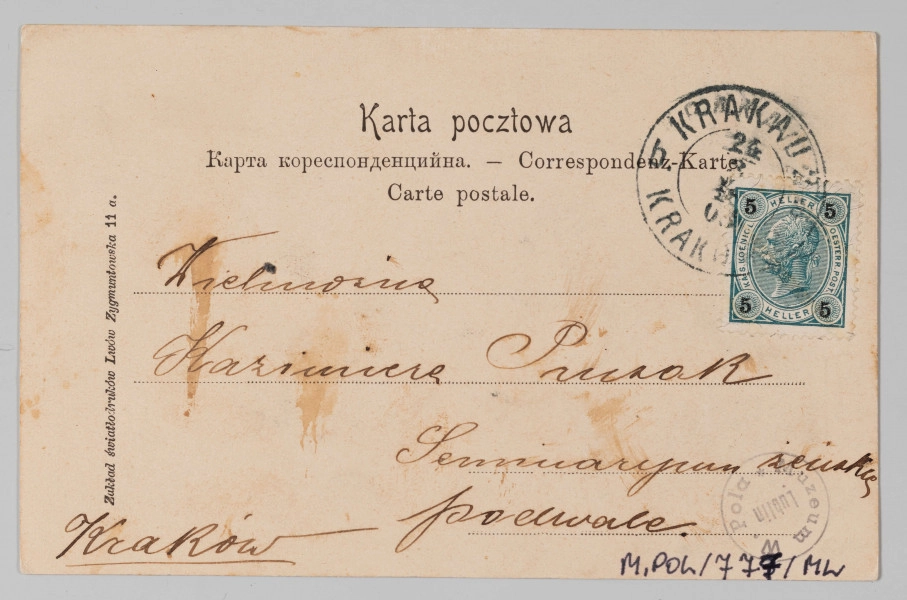 Karta pocztowa
Карта кореспонденцийна. — Correspondenz-Karte.
Carte postale.
KRAKAU
24
03
KRAKÓ
5 HELLER 5
KAIS. KOENIGL. OESTERR. POST
5 HELLER 5
Zakład światłodruków Lwów Zygmuntowska 11 a.
Wielmożna
Kazimiera Prusak
Seminaryum żeńskie
podwale
Kraków
Muzeum
Lublin
M.POL/777/ML